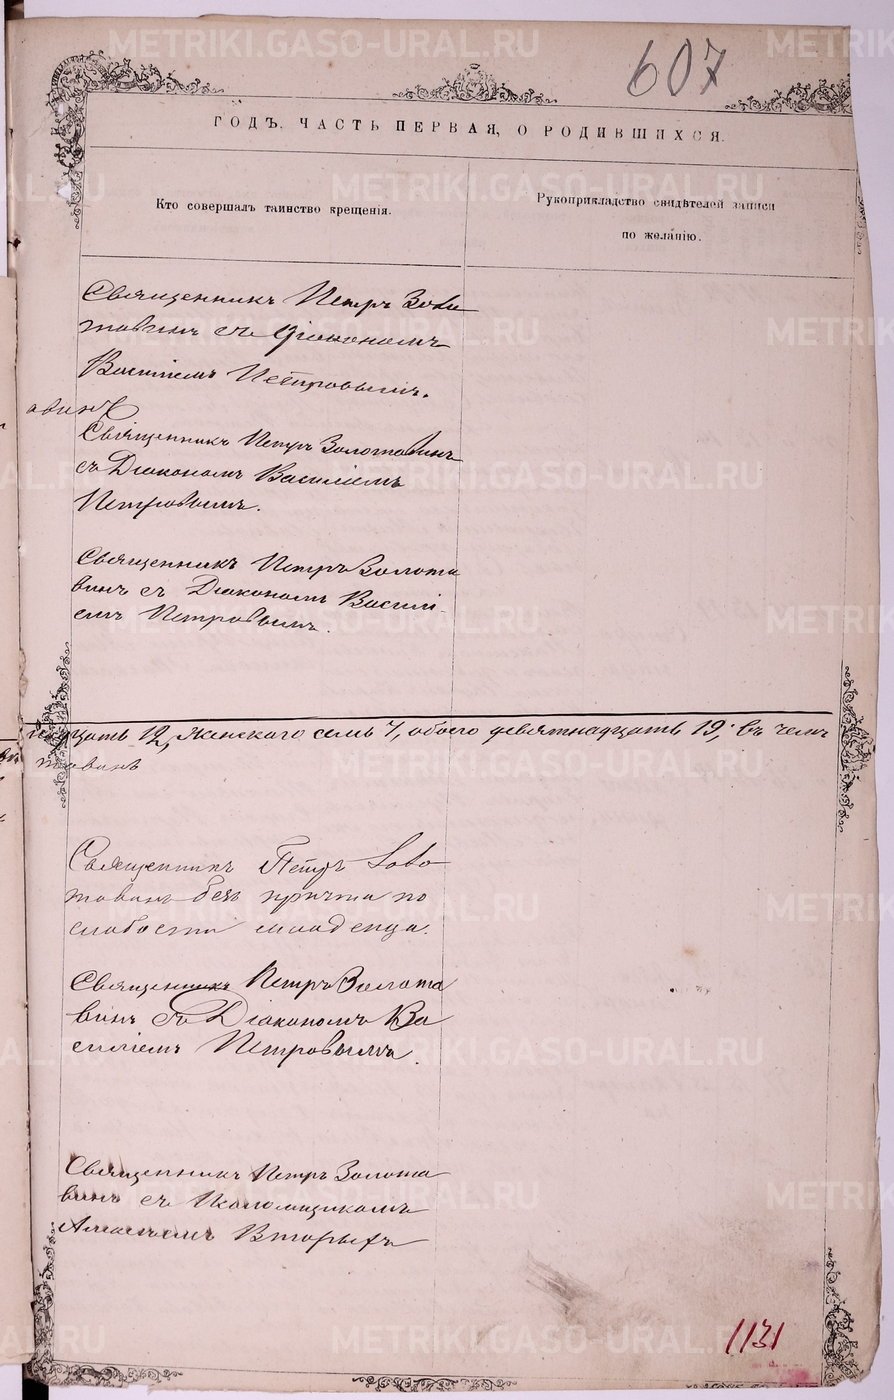 607
ГОДЪ, ЧАСТЬ ПЕРВАЯ, О РОДИВШИХСЯ.
Кто совершалъ таинство крещенія.
Рукоприкладство свидѣтелей записи
по желанію.
Священникъ Петръ Золо
тавинъ съ Діакономъ
Василіемъ Петровымъ.
авинъ
Священникъ Петръ Золотавинъ
съ Діакономъ Василіемъ
Петровымъ.
Священникъ Петръ Золота
винъ съ Діакономъ Василі
емъ Петровымъ.
12, женскаго семь 7, обоего девятнадцать 19; въ чемъ
тавинъ
Священникъ Петръ Золо
тавинъ безъ причта по
слабости младенца.
Священникъ Петръ Золота
винъ съ Діакономъ Ва
силіемъ Петровымъ.
Священникъ Петръ Золота
винъ съ Псаломщикомъ
Вторыхъ
1131
METRIKI.GASO-URAL.RU